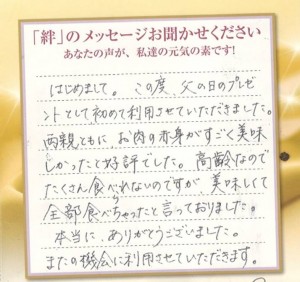 「絆」のメッセージお聞かせください
あなたの声が、私達の元気の素です!
はじめまして。この度、父の日のプレゼ
ントとして初めて利用させていただきました。
両親ともに お肉の赤身がすごく美味
しかったと好評でした。高齢なので
たくさん食べれないのですが、美味しくて
全部食べちゃったと言っておりました。
本当に、ありがとうございました。
またの機会に利用させていただきます。